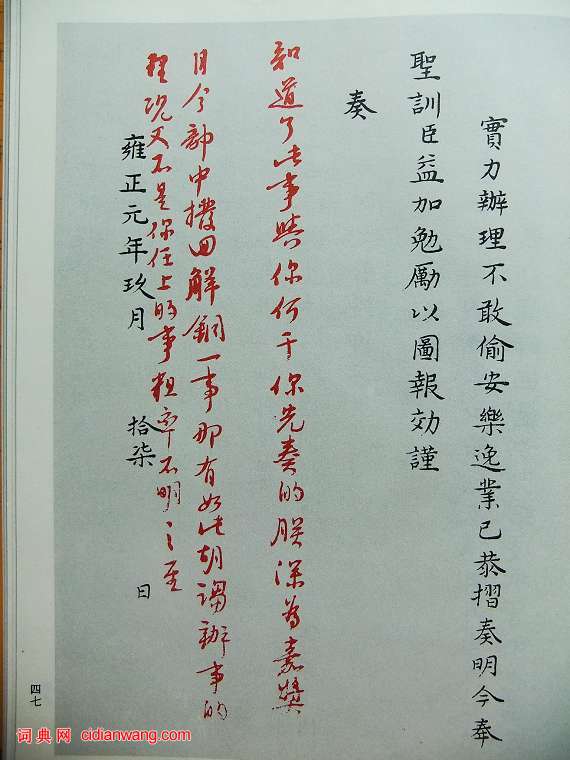 實力辦理不敢偷安樂逸業已恭摺奏明今奉
聖訓臣益加勉勵以圖報効謹
奏
知道了此事與你何干你先奏的朕深為嘉獎
目今部中撥回解銅一事那有如此胡謅辦事的
理況又不是你任上的事粗率不明之至
雍正元年玖月拾柒日
四七
词典网：cidianwang.com